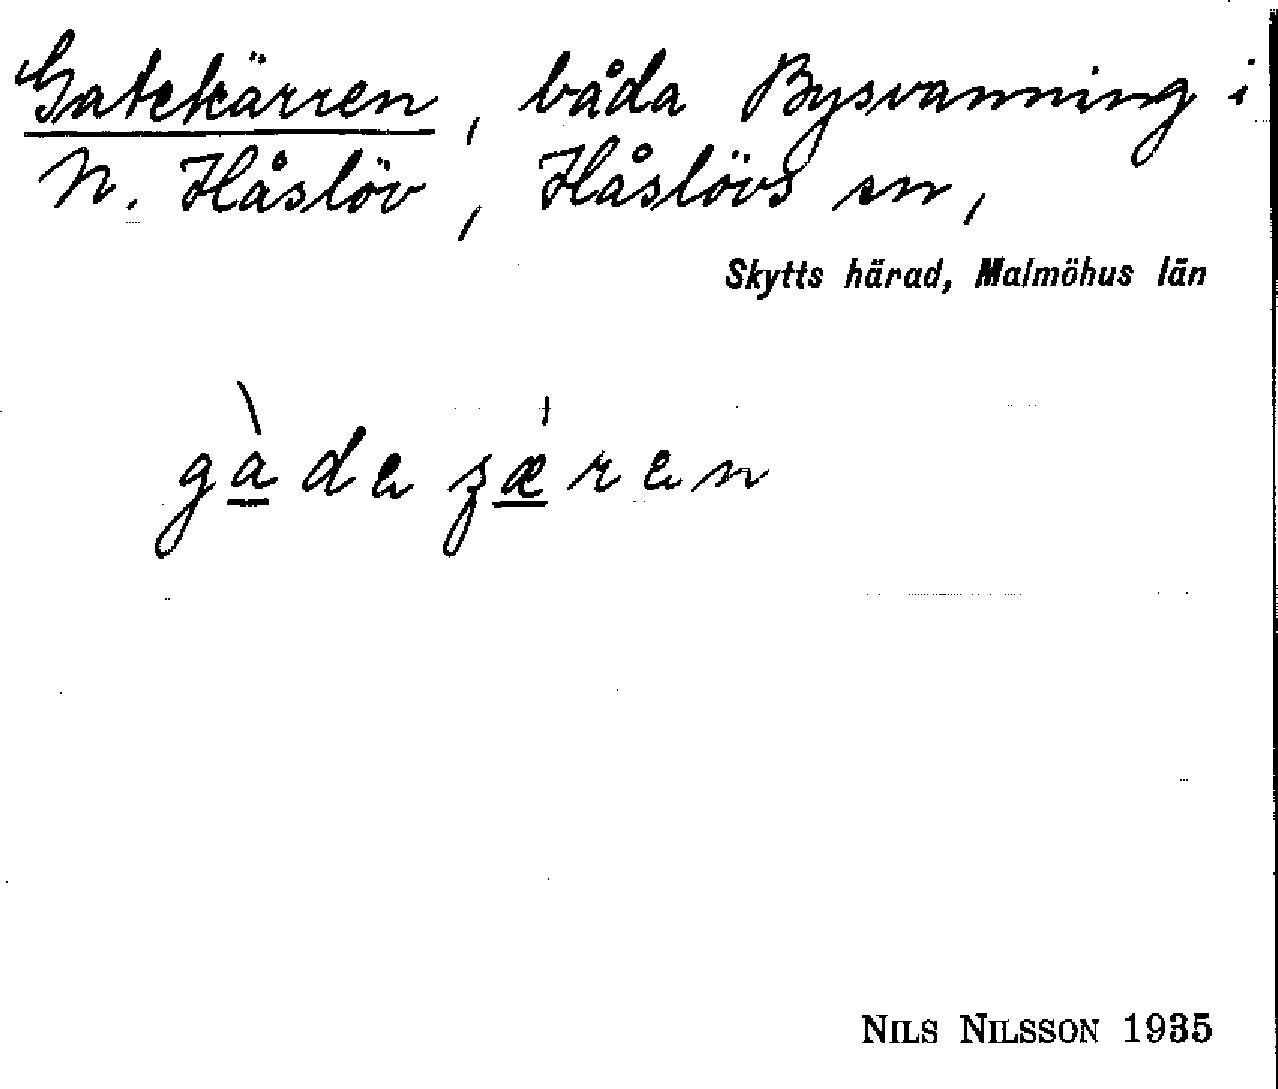 Gatekärren, båda Bysvanning i
N. Håslöv, Håslövs sn,
Skytts härad, Malmöhus län
gàde zæ̍ren
NILS NILSSON 1935